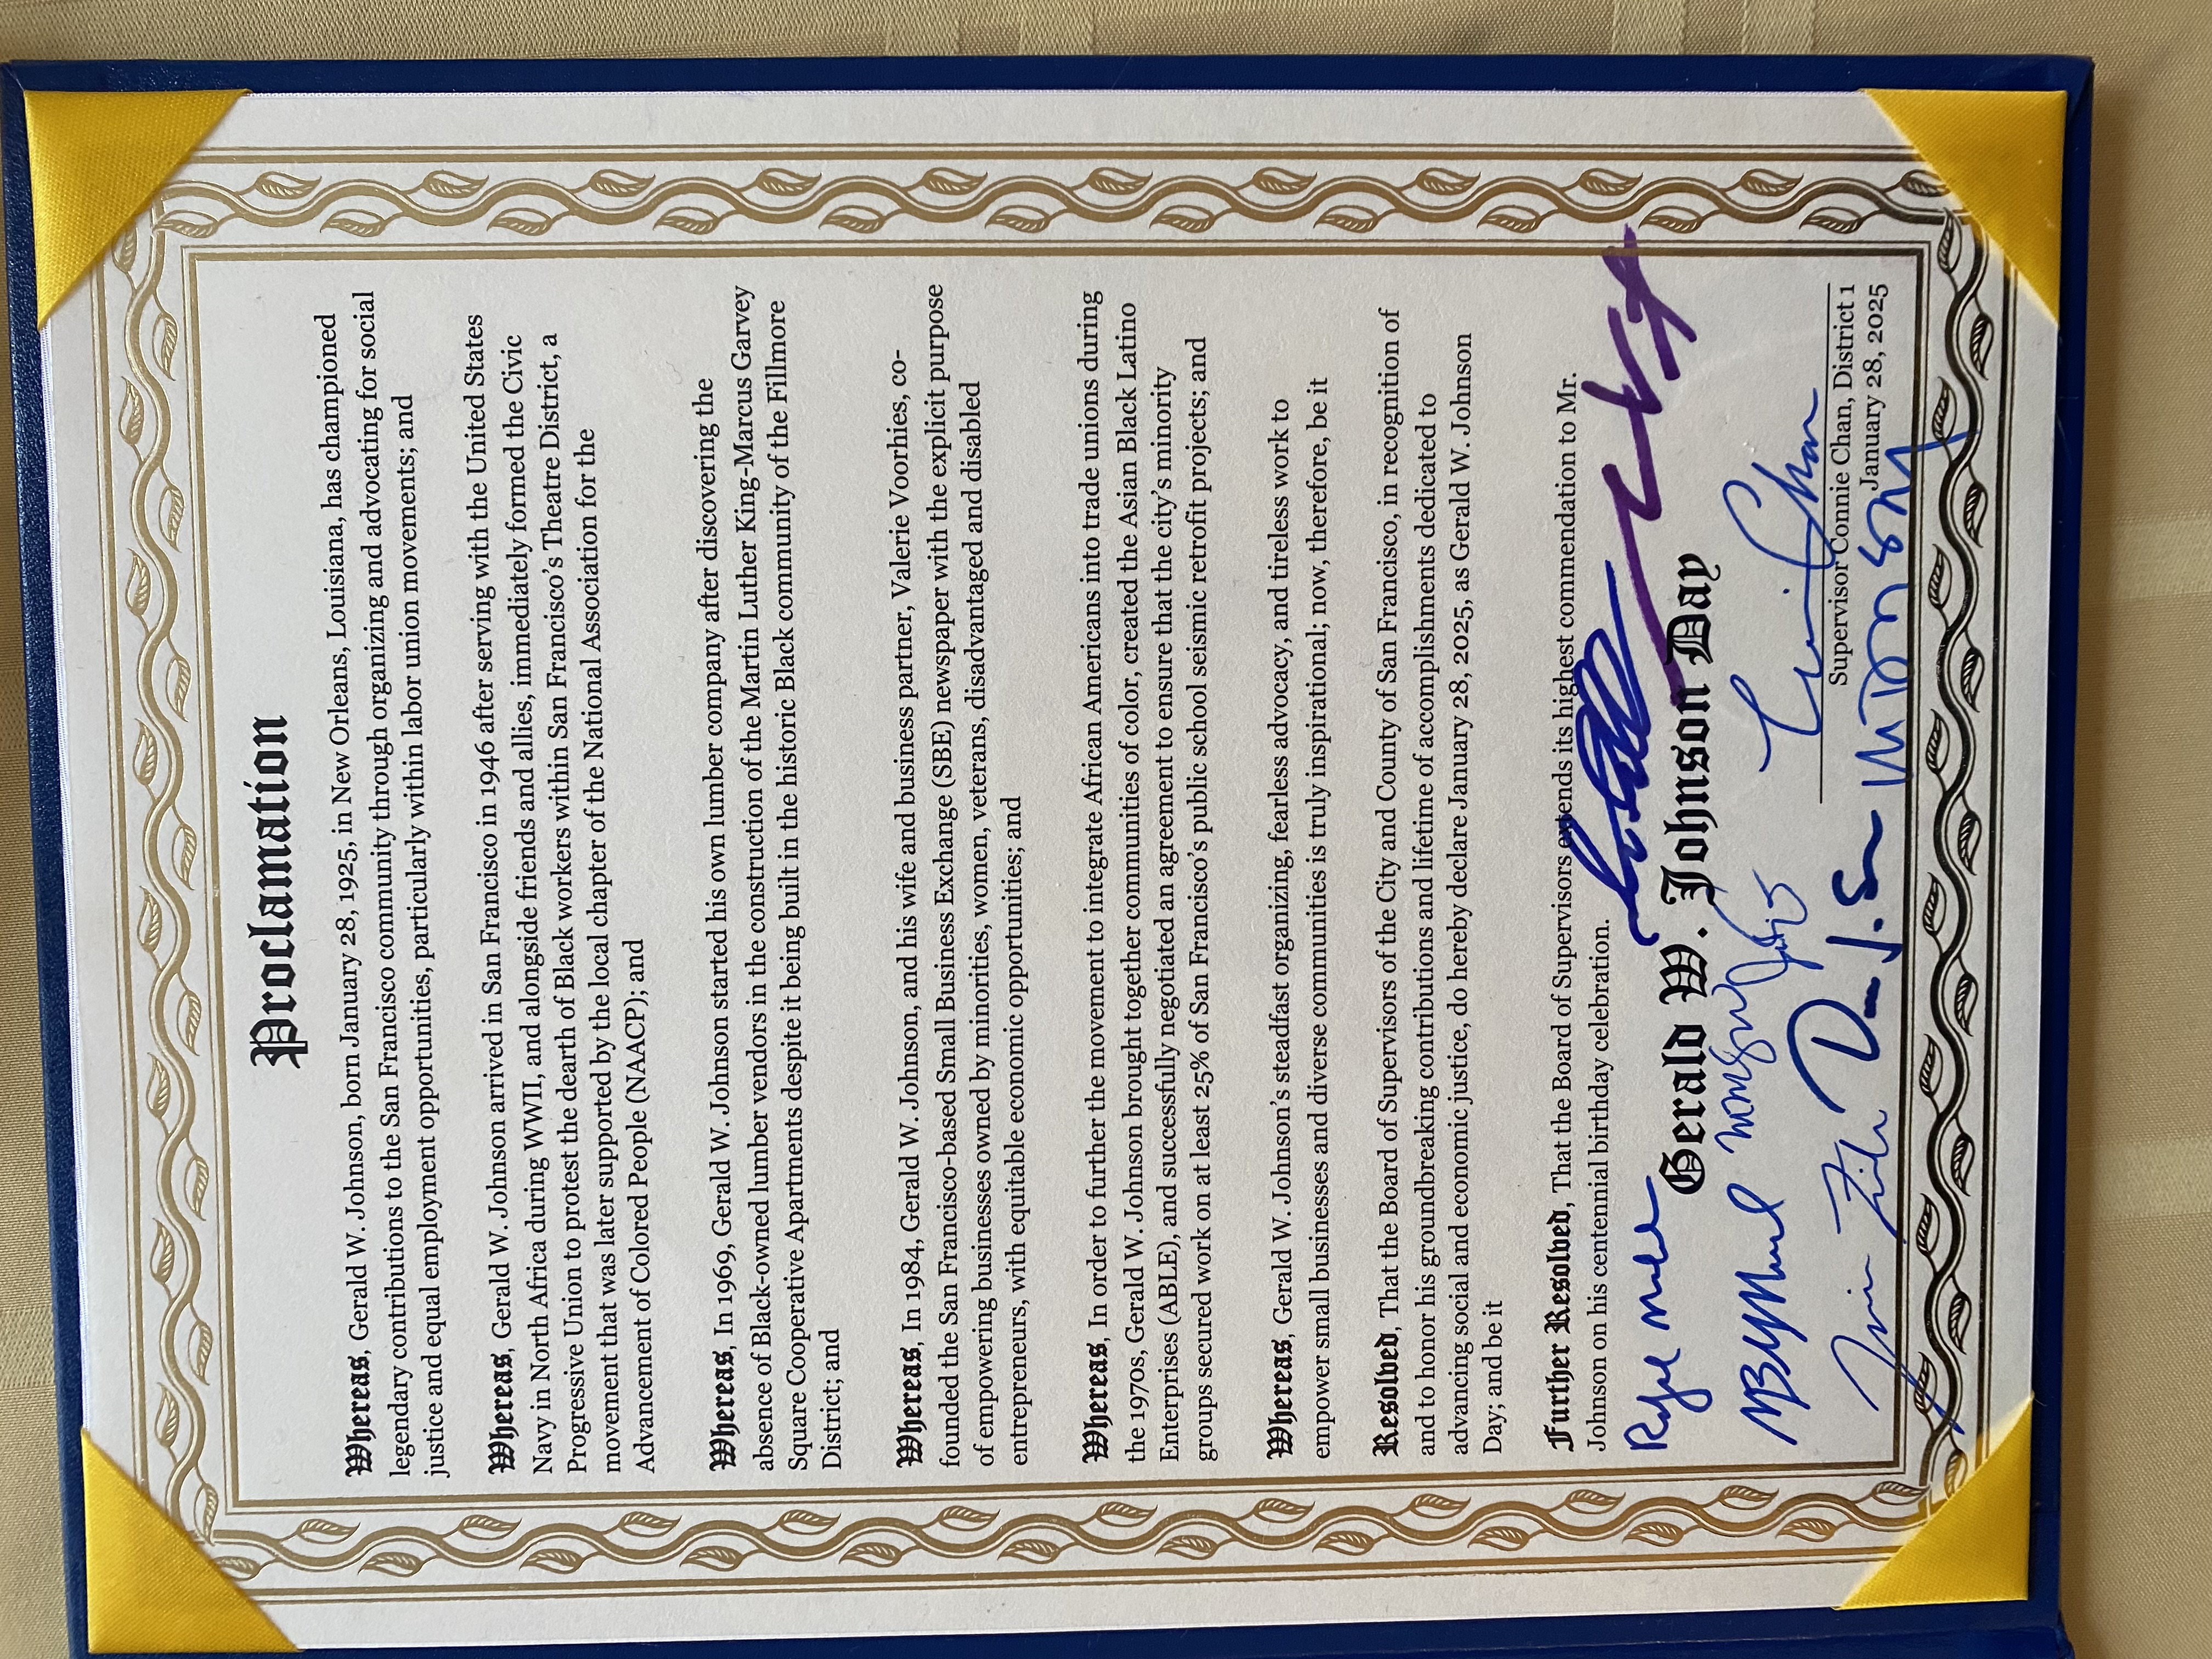 Proclamation
Whereas, Gerald W. Johnson, born January 28, 1925, in New Orleans, Louisiana, has championed
legendary contributions to the San Francisco community through organizing and advocating for social
justice and equal employment opportunities, particularly within labor union movements; and
Whereas, Gerald W. Johnson arrived in San Francisco in 1946 after serving with the United States
Navy in North Africa during WWII, and alongside friends and allies, immediately formed the Civic
Progressive Union to protest the dearth of Black workers within San Francisco's Theatre District, a
movement that was later supported by the local chapter of the National Association for the
Advancement of Colored People (NAACP); and
Whereas, In 1969, Gerald W. Johnson started his own lumber company after discovering the
absence of Black-owned lumber vendors in the construction of the Martin Luther King-Marcus Garvey
Square Cooperative Apartments despite it being built in the historic Black community of the Fillmore
District; and
Whereas, In 1984, Gerald W. Johnson, and his wife and business partner, Valerie Voorhies, co-
founded the San Francisco-based Small Business Exchange (SBE) newspaper with the explicit purpose
of empowering businesses owned by minorities, women, veterans, disadvantaged and disabled
entrepreneurs, with equitable economic opportunities; and
Whereas, In order to further the movement to integrate African Americans into trade unions during
the 1970s, Gerald W. Johnson brought together communities of color, created the Asian Black Latino
Enterprises (ABLE), and successfully negotiated an agreement to ensure that the city's minority
groups secured work on at least 25% of San Francisco's public school seismic retrofit projects; and
Whereas, Gerald W. Johnson's steadfast organizing, fearless advocacy, and tireless work to
empower small businesses and diverse communities is truly inspirational; now, therefore, be it
Resolved, That the Board of Supervisors of the City and County of San Francisco, in recognition of
and to honor his groundbreaking contributions and lifetime of accomplishments dedicated to
advancing social and economic justice, do hereby declare January 28, 2025, as Gerald W. Johnson
Day; and be it
Further Resolved, That the Board of Supervisors extends its highest commendation to Mr.
Johnson on his centennial birthday celebration.
Gerald W. Johnson Day
Connie Chan
Supervisor Connie Chan, District 1
January 28, 2025